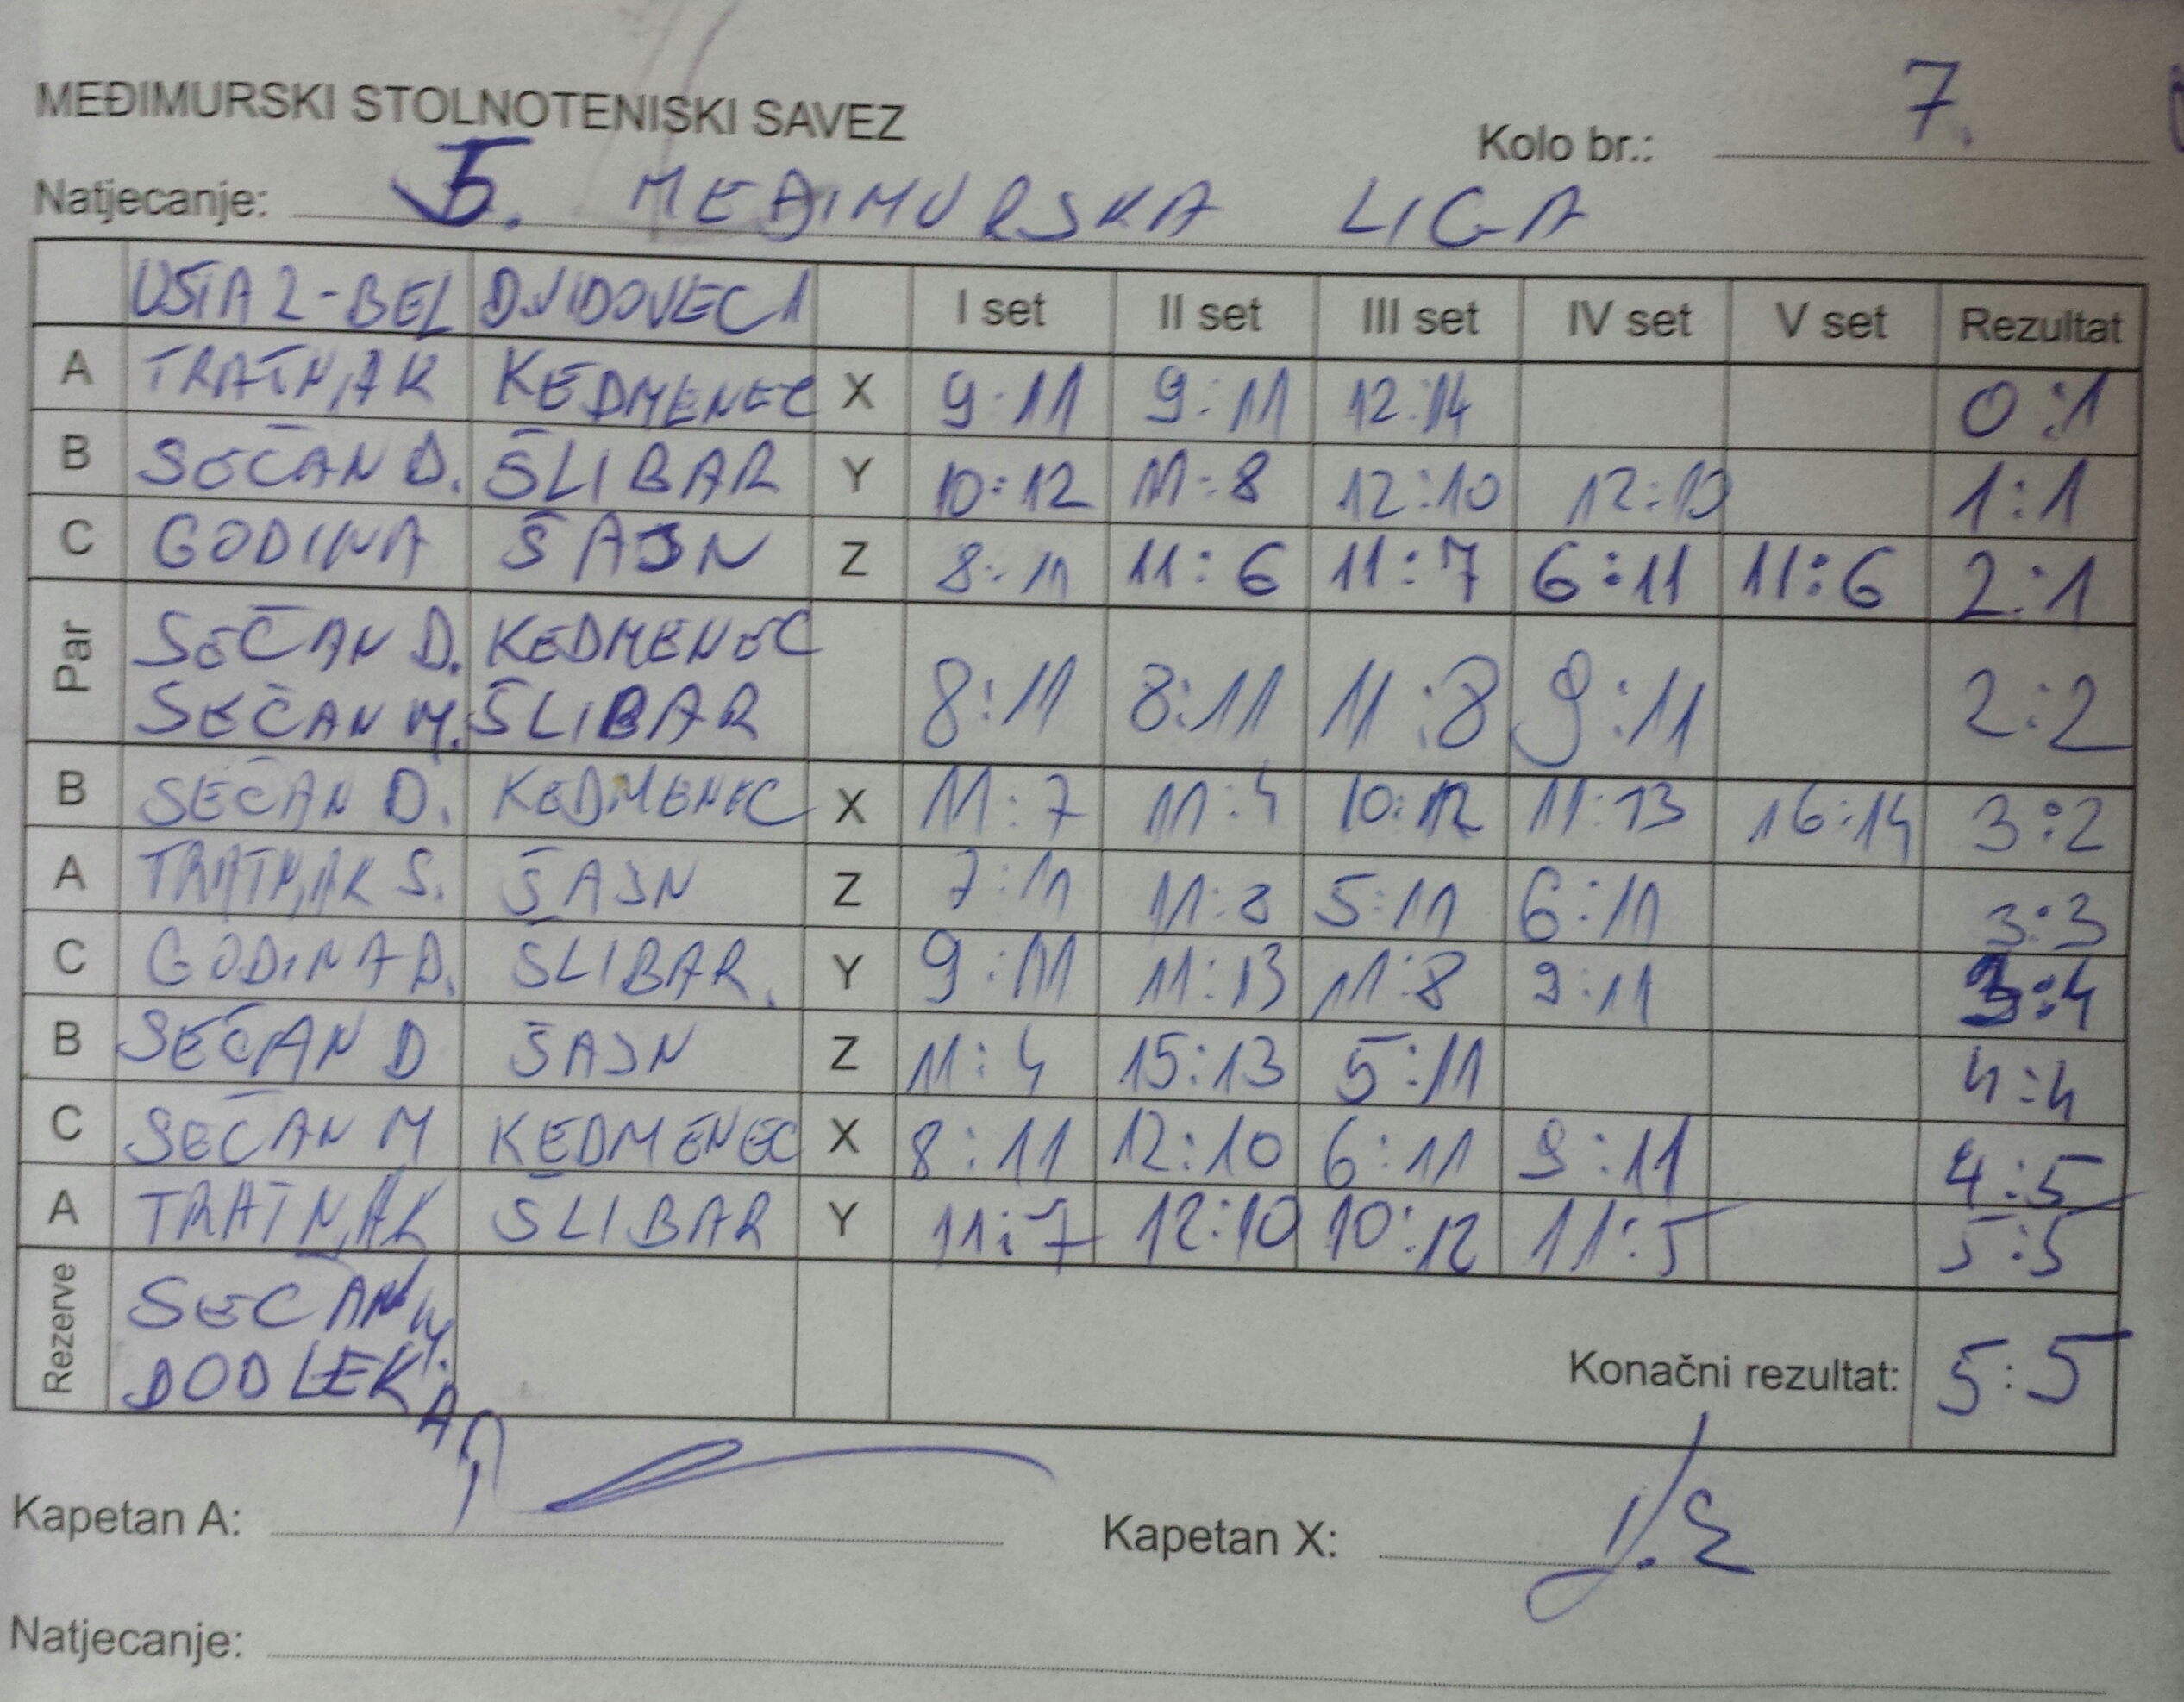 MEĐIMURSKI STOLNOTENISKI SAVEZ
Kolo br.: 7.
Natjecanje: MEĐIMURSKA LIGA
2-BEL I set II set III set IV set V set Rezultat
A TRATNJAK KEDMENEC X 9:11 9:11 12:14 0:1
B SEČAN D. ŠLIBAR Y 10:12 11:8 12:10 12:10 1:1
C GODINA ŠAJN Z 8:11 11:6 11:7 6:11 11:6 2:1
Par SEČAN D. KEDMENEC
SEČAN M. ŠLIBAR 8:11 8:11 11:8 9:11 2:2
B SEČAN D. KEDMENEC X 11:7 11:4 10:12 11:13 16:14 3:2
A TRATNJAK S. ŠAJN Z 7:11 11:8 5:11 6:11 3:3
C GODINA D. ŠLIBAR. Y 9:11 11:13 11:8 9:11 3:4
B SEČAN D ŠAJN Z 11:4 15:13 5:11 4:4
C SEČAN M KEDMENEC X 8:11 12:10 6:11 9:11 4:5
A TRATNJAK ŠLIBAR Y 11:7 12:10 10:12 11:5 5:5
Rezerve SEČAN M.
DODLEK A
Konačni rezultat: 5:5
Kapetan A: Kapetan X:
Natjecanje: